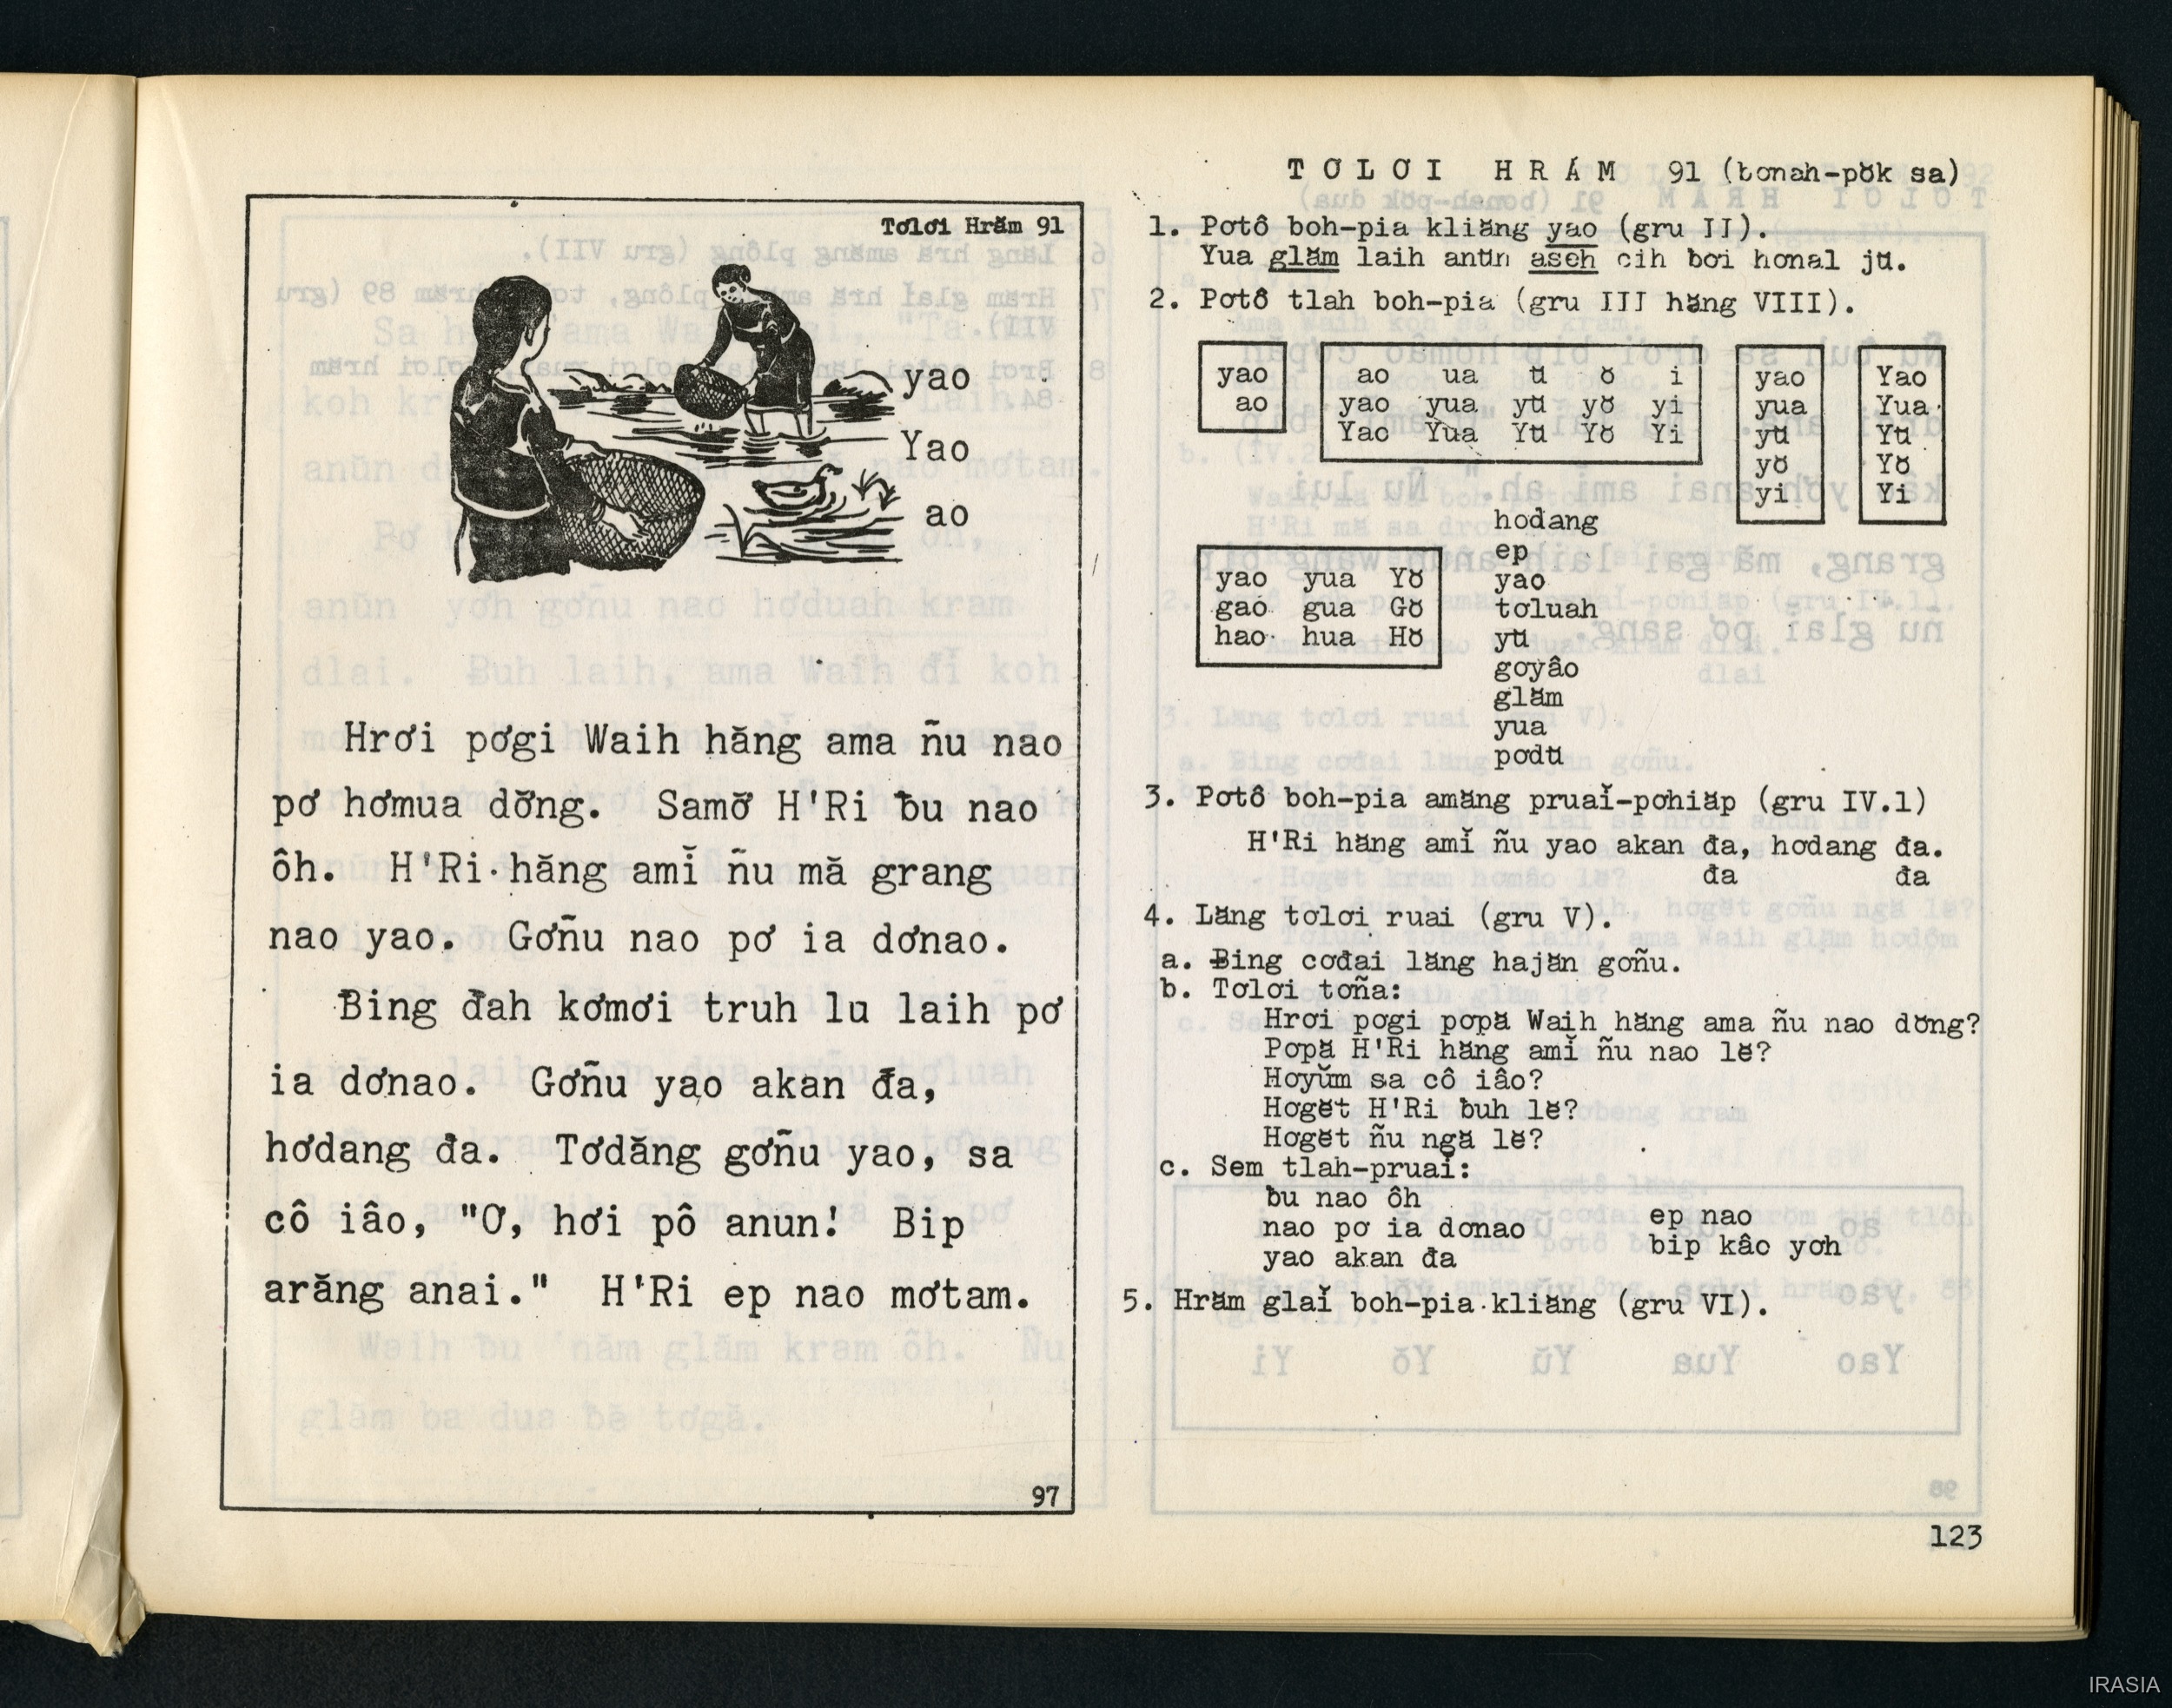 Tơlơi Hrăm 91
yao
Yao
ao
Hrơi pơgi Waih hăng ama ñu nao
pơ hơmua dơ̆ng. Samơ̆ H'Ri ƀu nao
ôh. H'Ri hăng amĭ ñu mă grang
nao yao. Gơñu nao pơ ia dơnao.
Ƀing đah kơmơi truh lu laih pơ
ia dơnao. Gơñu yao akan đa,
hơdang đa. Tơdăng gơñu yao, sa
cô iâo, "Ơ, hơi pô anun! Bip
arăng anai." H'Ri ep nao mơtam.
97
TƠLƠI HRÁM 91 (bơnah-pŏk sa)
1. Pơtô boh-pia kliăng yao (gru II).
Yua glăm laih anŭn aseh cih ƀơi hơnal jŭ.
2. Pơtô tlah boh-pia (gru III hăng VIII).
yao
ao
ao ua ŭ ơ̆ i
yao yua yŭ yơ̆ yi
Yao Yua Yŭ Yơ̆ Yi
yao
yua
yŭ
yơ̆
yi
Yao
Yua
Yŭ
Yơ̆
Yi
yao yua Yơ̆
gao gua Gơ̆
hao hua Hơ̆
hơdang
ep
yao
tơluah
yŭ
gơyâo
glăm
yua
pơdŭ
3. Pơtô boh-pia amăng pruaĭ-pơhiăp (gru IV.1)
H'Ri hăng amĭ ñu yao akan đa, hơdang đa.
đa đa
4. Lăng tơlơi ruai (gru V).
a. Ƀing cơđai lăng hajăn gơñu.
b. Tơlơi tơña:
Hrơi pơgi pơpă Waih hăng ama ñu nao dơ̆ng?
Pơpă H'Ri hăng amĭ ñu nao lĕ?
Hơyŭm sa cô iâo?
Hơgĕt H'Ri ƀuh lĕ?
Hơgĕt ñu ngă lĕ?
c. Sem tlah-pruaĭ:
ƀu nao ôh
nao pơ ia dơnao
yao akan đa
ep nao
bip kâo yơh
5. Hrăm glaĭ boh-pia kliăng (gru VI).
123
IRASIA